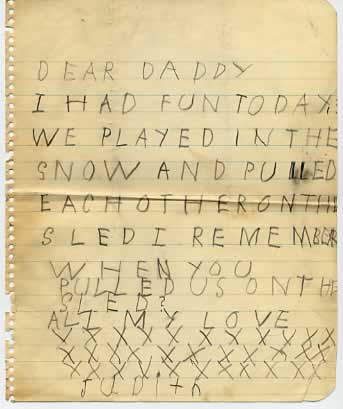 DEAR DADDY
I HAD FUN TODAY.
WE PLAYED IN THE
SNOW AND PULLED
EACH OTHER ON THE
SLED I REMEMBER
WHEN YOU
PULLED US ON THE
SLED?
ALL MY LOVE
XXXXXXXXXXXX
XXXXXXXXXXXX
XXXXXXXXXXXX
Judith